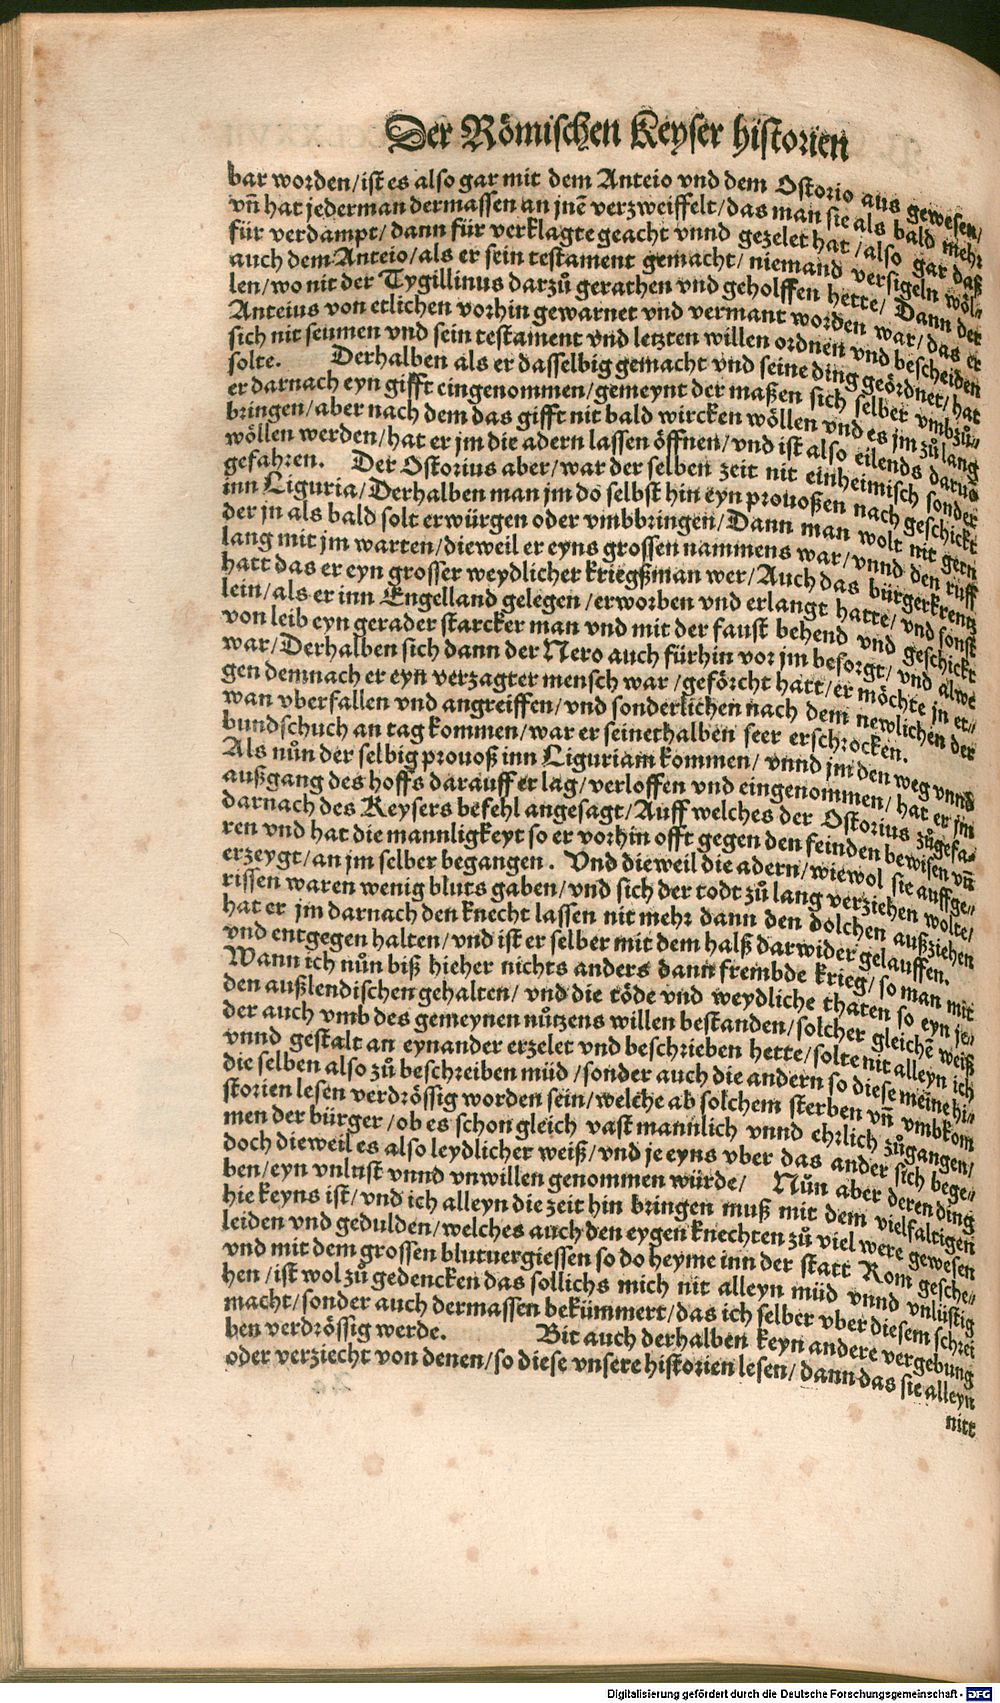 Der Römischen Keyser historien
bar worden/ist es also gar mit dem Anteio vnd dem Ostorio aus gewesen/
vñ hat jederman dermassen an jnē verzweiffelt/das man sie als bald mehr
für verdampt/dann für verklagte geacht vnnd gezelet hat/also gar daß
auch dem Anteio/als er sein testament gemacht/niemand versigeln wöl⸗
len/wo nit der Tygillinus darzů gerathen vnd geholffen hette/Dann der
Anteius von etlichen vorhin gewarnet vnd vermant worden war/das er
sich nit seumen vnd sein testament vnd letzten willen ordnen vnd bescheiden
solte. Derhalben als er dasselbig gemacht vnd seine ding geördnet/hat
er darnach eyn gifft eingenommen/gemeynt der maßen sich selber vmbzů⸗
bringen/aber nach dem das gifft nit bald wircken wöllen vnd es jm zů lang
wöllen werden/hat er jm die adern lassen öffnen/vnd ist also eilends daruō
gefahren. Der Ostorius aber/war der selben zeit nit einheimisch sonder
inn Liguria/Derhalben man jm do selbst hin eyn prouoßen nach geschickt
der jn als bald solt erwürgen oder vmbbringen/Dann man wolt nit gern
lang mit jm warten/dieweil er eyns grossen nammens war/vnnd den ruff
hatt das er eyn grosser weydlicher kriegßman wer/Auch das bürgerkrentz
lein/als er inn Engelland gelegen/erworben vnd erlangt hatte/vnd sonst
von leib eyn gerader starcker man vnd mit der faust behend vnd geschickt
war/Derhalben sich dann der Nero auch fürhin vor jm besorgt/vnd alwe
gen demnach er eyn verzagter mensch war/geförcht hatt/er möchte jn et⸗
wan vberfallen vnd angreiffen/vnd sonderlichen nach dem newlichen der
bundschuch an tag kommen/war er seinethalben seer erschrocken.
Als nůn der selbig prouoß inn Liguriam kommen/vnnd jm den weg vnnd
außgang des hoffs darauff er lag/verloffen vnd eingenommen/hat er jm
darnach des Keysers befehl angesagt/Auff welches der Ostorius zůgefa⸗
ren vnd hat die mannligkeyt so er vorhin offt gegen den feinden bewisen vñ
erzeygt/an jm selber begangen. Vnd dieweil die adern/wiewol sie auffge⸗
rissen waren wenig bluts gaben/vnd sich der todt zů lang verziehen wolte/
hat er jm darnach den knecht lassen nit mehr dann den dolchen außziehen
vnd entgegen halten/vnd ist er selber mit dem halß darwider gelauffen.
Wann ich nůn biß hieher nichts anders dann frembde krieg/so man mit
den außlendischen gehalten/vnd die töde vnd weydliche thaten so eyn je⸗
der auch vmb des gemeynen nůtzens willen bestanden/solcher gleichē weiß
vnnd gestalt an eynander erzelet vnd beschrieben hette/solte nit alleyn ich
die selben also zů beschreiben müd/sonder auch die andern so diese meine hi⸗
storien lesen verdrössig worden sein/welche ab solchem sterben vñ vmbkom
men der bürger/ob es schon gleich vast mannlich vnnd ehrlich zůgangen/
doch dieweil es also leydlicher weiß/vnd je eyns vber das ander sich bege⸗
ben/eyn vnlust vnnd vnwillen genommen würde/ Nůn aber deren ding
hie keyns ist/vnd ich alleyn die zeit hin bringen muß mit dem vielfaltigen
leiden vnd gedulden/welches auch den eygen knechten zů viel were gewesen
vnd mit dem grossen blutuergiessen so do heyme inn der statt Rom gesche⸗
hen/ist wol zů gedencken das sollichs mich nit alleyn müd vnnd vnlüstig
macht/sonder auch dermassen bekümmert/das ich selber vber diesem schrei
ben verdrössig werde. Bit auch derhalben keyn andere vergebung
oder verziecht von denen/so diese vnsere historien lesen/dann das sie alleyn
nitt
Digitalisierung gefördert durch die Deutsche Forschungsgemeinschaft - DFG